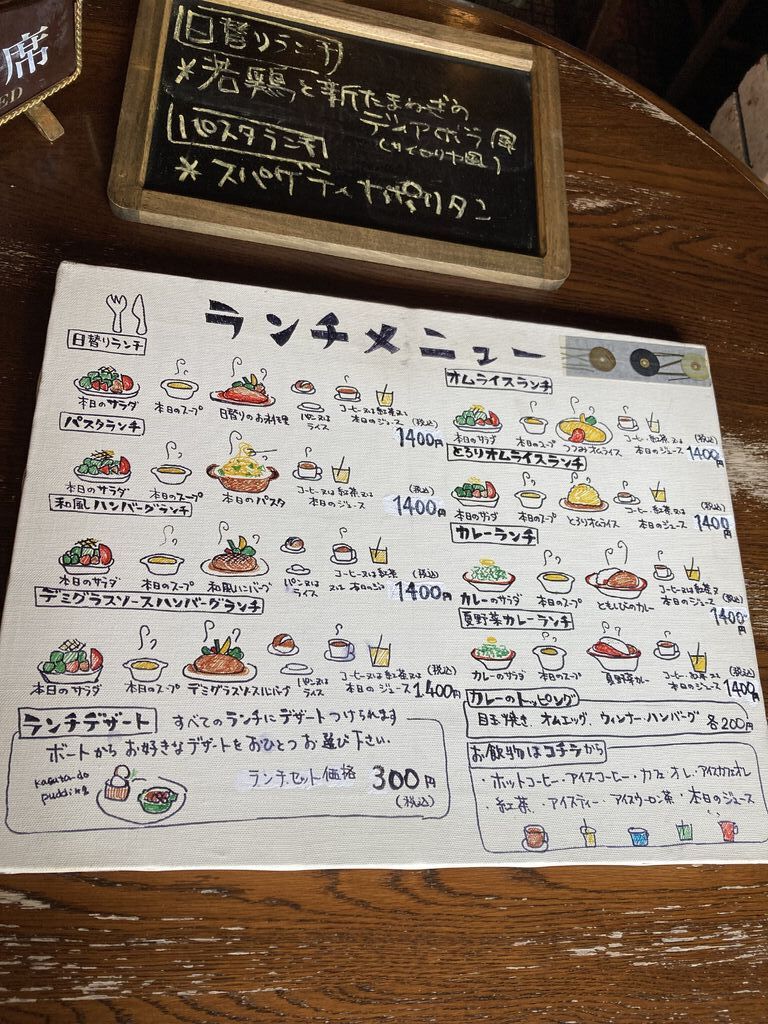 席
ED
日替りランチ
*若鶏と新たまねぎの
ディアボラ風
パスタランチ
*スパゲティナポリタン
ランチメニュー
日替りランチ
本日のサラダ 本日のスープ 日替りのお料理 パン又はライス コーヒー又は紅茶又は本日のジュース (税込) 1400円
パスタランチ
本日のサラダ 本日のスープ 本日のパスタ コーヒー又は紅茶又は本日のジュース (税込) 1400円
和風ハンバーグランチ
本日のサラダ 本日のスープ 和風ハンバーグ パン又はライス コーヒー又は紅茶 (税込) 1400円
デミグラスソースハンバーグランチ
本日のサラダ 本日のスープ パン又はライス コーヒー又は紅茶又は本日のジュース (税込) 1,400円
ランチデザート すべてのランチにデザートつけられます
ボートからお好きなデザートをおひとつお選び下さい.
ランチセット価格 300円
(税込)
オムライスランチ
本日のサラダ 本日のスープ つつみオムライス コーヒー又は紅茶又は本日のジュース (税込) 1400円
とろりオムライスランチ
本日のサラダ 本日のスープ とろりオムライス コーヒー又は紅茶又は本日のジュース (税込) 1400円
カレーランチ
カレーのサラダ 本日のスープ ともしびのカレー コーヒー又は紅茶又は本日のジュース (税込) 1400円
夏野菜カレーランチ
カレーのサラダ 本日のスープ 夏野菜カレー コーヒー又は紅茶又は本日のジュース (税込) 1400円
カレーのトッピング
目玉焼き、オムエッグ、ウィンナー・ハンバーグ 各200円
お飲物はコチラから
・ホットコーヒー・アイスコーヒー・カフェオレ・アイスカフェオレ
・紅茶・アイスティー・アイスウーロン茶・本日のジュース